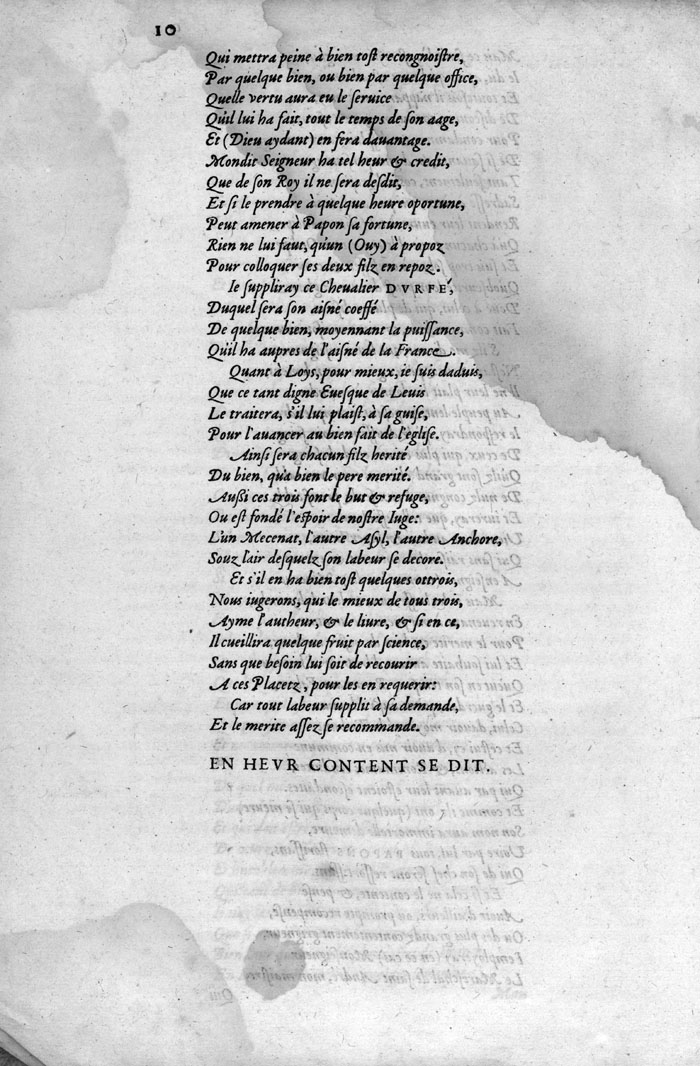 10
Qui mettra peine à bien tost recongnoiſtre,
Par quelque bien, ou bien par quelque office,
Quelle vertu aura eu le ſeruice
Qu'il lui ha fait, tout le temps de ſon aage,
Et (Dieu aydant) en fera dauantage.
Mondit Seigneur ha tel heur & credit,
Que de ſon Roy il ne ſera deſdit,
Et ſi le prendre à quelque heure oportune,
Peut amener à Papon ſa fortune,
Rien ne lui faut, qu'un (Ouy) à propoz
Pour colloquer ſes deux filz en repoz.
Ie ſuppliray ce Cheualier DVRFÉ,
Duquel ſera ſon aiſné coeffé
De quelque bien, moyennant la puiſſance,
Qu'il ha aupres de l'aiſné de la France.
Quant à Loys, pour mieux, ie ſuis daduis,
Que ce tant digne Eueſque de Leuis
Le traitera, s'il lui plaiſt, à ſa guiſe,
Pour l'auancer au bien fait de l'egliſe.
Ainſi ſera chacun filz herité
Du bien, qu'a bien le pere merité.
Außi ces trois font le but & refuge,
Ou est fondé l'eſpoir de nostre Iuge:
L'un Mecenat, l'autre Aſyl, l'autre Anchore,
Souz l'air deſquelz ſon labeur ſe decore.
Et s'il en ha bien tost quelques ottrois,
Nous iugerons, qui le mieux de tous trois,
Ayme l'autheur, & le liure, & ſi en ce,
Il cueillira quelque fruit par ſcience,
Sans que beſoin lui ſoit de recourir
A ces Placetz, pour les en requerir:
Car tout labeur ſupplit à ſa demande,
Et le merite aſſez ſe recommande.
EN HEVR CONTENT SE DIT.